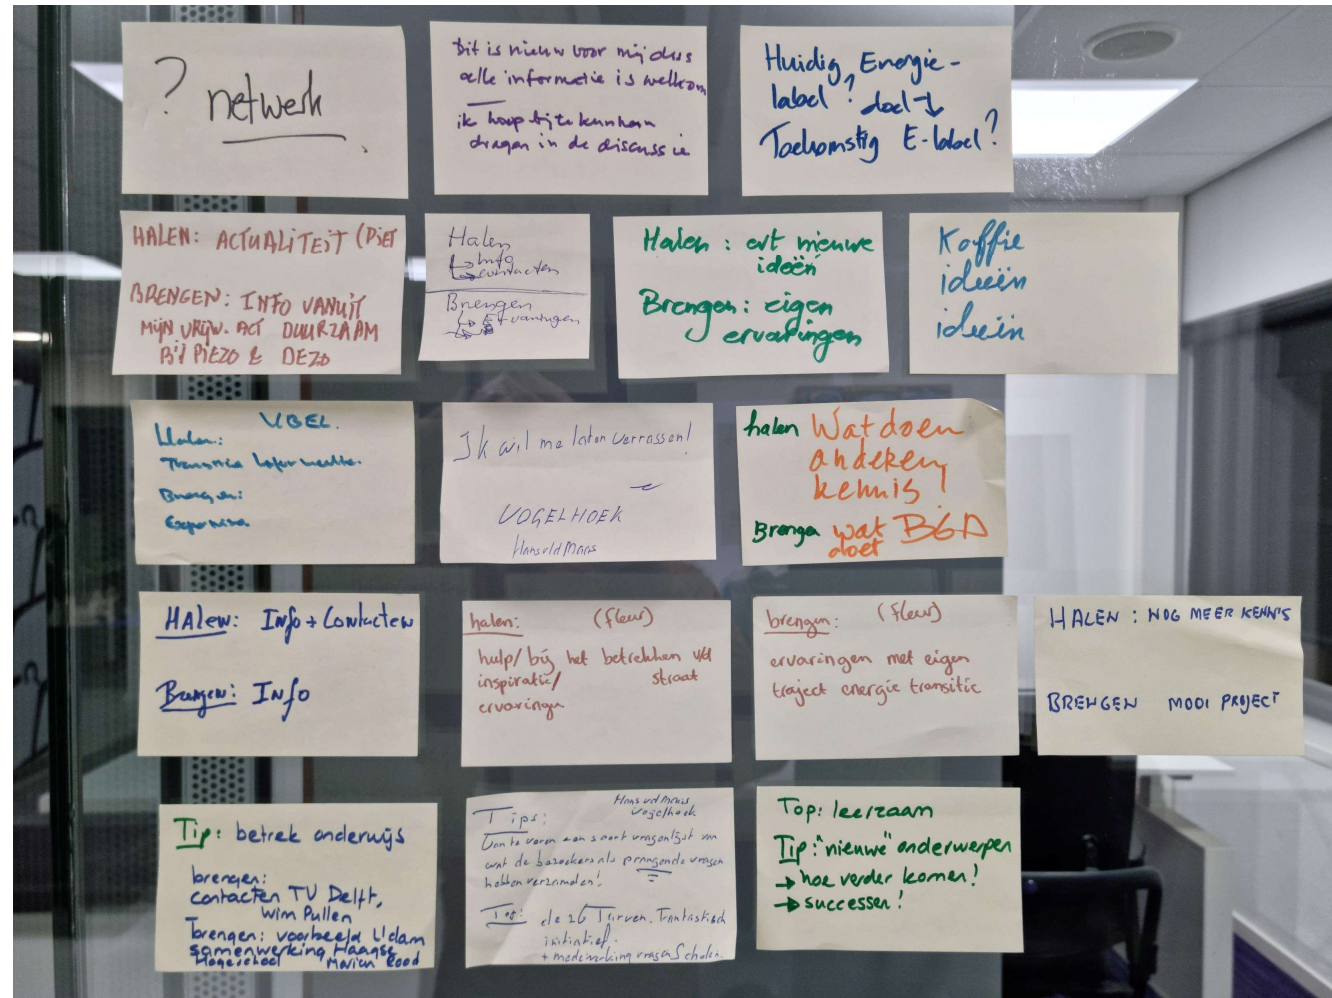 ? netwerk
Dit is nieuw voor mij dus
alle informatie is welkom
ik hoop bij te kunnen
dragen in de discussie
Huidig Energie-
label? doel →
Toekomstig E-label?
HALEN: ACTUALITEIT (PIET
BRENGEN: INFO VANUIT
MIJN VRIJW. ACT DUURZAAM
BIJ PIEZO & DEZO
Halen
→ Info
→ contacten
Brengen
→ Ervaringen
Halen: evt nieuwe
ideeën
Brengen: eigen
ervaringen
Koffie
ideeën
ideeën
VBEL.
Halen:
Brengen:
Expertise
Ik wil me laten verrassen!
VOGELHOEK
Hans vld Maas
halen Wat doen
anderen,
kennis!
Brengen wat BGD
doet
HALEN: Info + Contacten
Brengen: Info
halen: (Fleur)
hulp/ bij het betrekken v/d
inspiratie/ straat
ervaringen
brengen: (Fleur)
ervaringen met eigen
traject energie transitie
HALEN: NOG MEER KENNIS
BRENGEN MOOI PROJECT
Tip: betrek onderwijs
brengen:
contacten TV Delft,
Wim Pullen
brengen: voorbeeld
samenwerking Haagse
Hogeschool Marian Rood
Hans vld Maas
Vogelhoek
Tips:
Van te voren een soort vragenlijst van
wat de bezoekers als prangende vragen
hebben verzameld!
Top: de 26 Turven. Fantastisch
initiatief.
+ medewerking vragen Scholen.
Top: leerzaam
Tip: "nieuwe" onderwerpen
→ hoe verder komen!
→ successen!